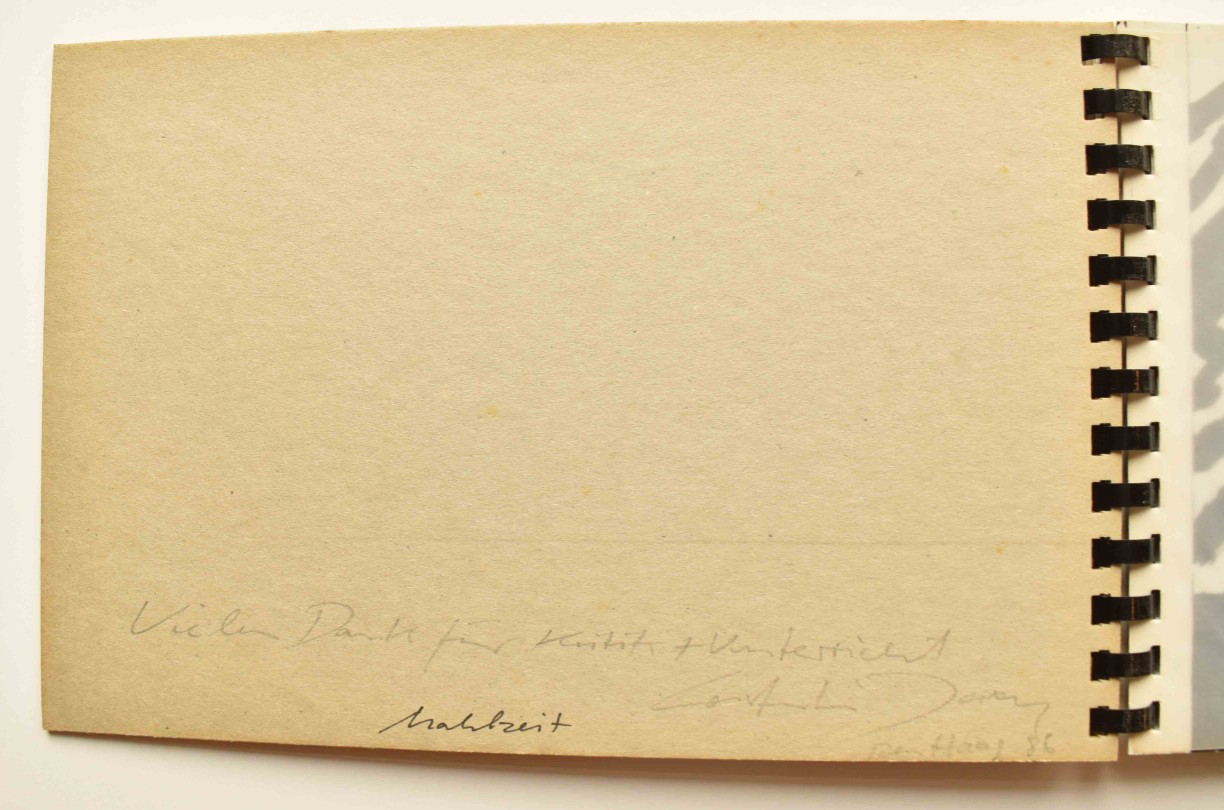 Vielen Dank für Kritik + Unterricht
Mahlzeit
Den Haag 86